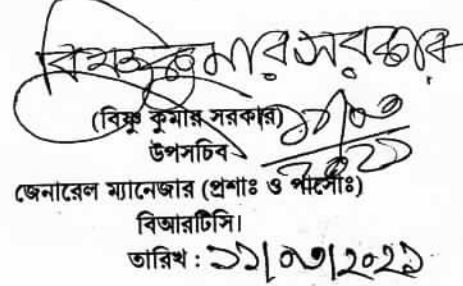 বিষ্ণু কুমার সরকার
(বিষ্ণু কুমার সরকার)
উপসচিব
জেনারেল ম্যানেজার (প্রশাঃ ও পার্সোঃ)
বিআরটিসি।
তারিখ : ১১/০৩/২০২১